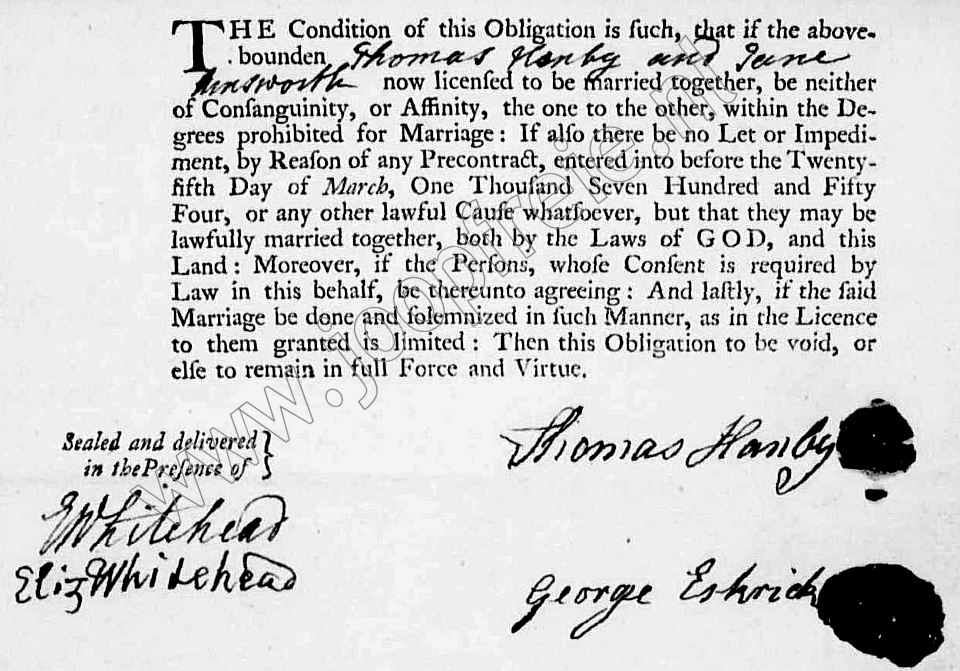 THE Condition of this Obligation is ſuch, that if the above-
bounden Thomas Hanby and Jane
Ainsworth now licenſed to be married together, be neither
of Conſanguinity, or Affinity, the one to the other, within the De-
grees prohibited for Marriage: If alſo there be no Let or Impedi-
ment, by Reaſon of any Precontract, entered into before the Twenty-
fifth Day of March, One Thouſand Seven Hundred and Fifty
Four, or any other lawful Cauſe whatſoever, but that they may be
lawfully married together, both by the Laws of GOD, and this
Land: Moreover, if the Perſons, whoſe Conſent is required by
Law in this behalf, be thereunto agreeing: And laſtly, if the ſaid
Marriage be done and ſolemnized in ſuch Manner, as in the Licence
to them granted is limited: Then this Obligation to be void, or
elſe to remain in full Force and Virtue.
Sealed and delivered
in the Preſence of
EWhitehead
Eliz Whitehead
Thomas Hanby
George Eskrick
www.joopfreie.nl